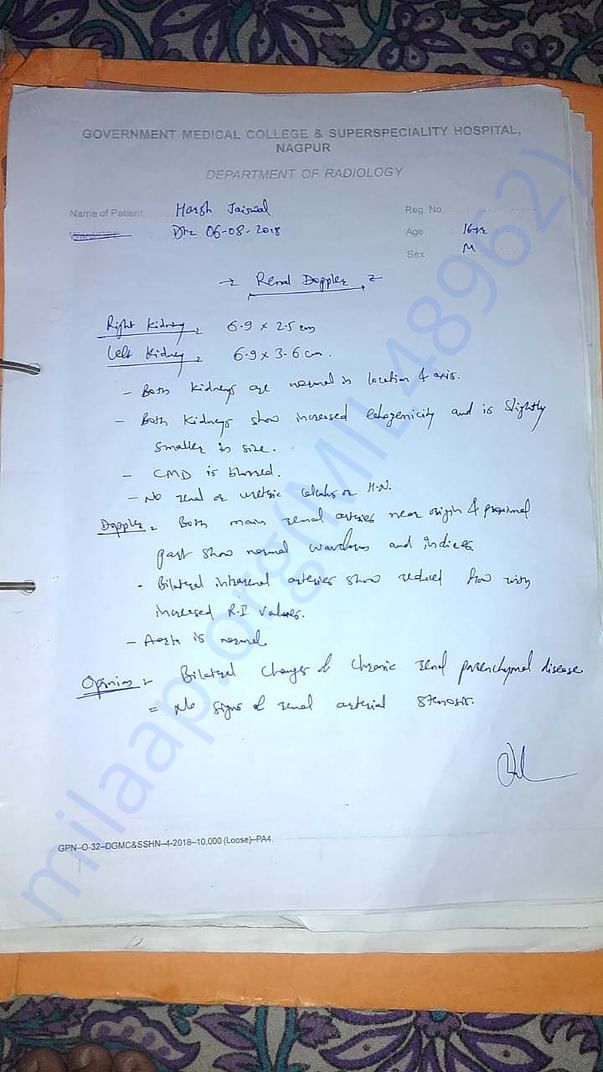 GOVERNMENT MEDICAL COLLEGE & SUPERSPECIALITY HOSPITAL,
NAGPUR
DEPARTMENT OF RADIOLOGY
Name of Patient Harsh Jaiswal
Reg. No.
Dt: 06-08-2018
Age 16 yr
Sex M
Renal Doppler
Right Kidney: 6.9 x 2.5 cm
Left Kidney: 6.9 x 3.6 cm.
- Both kidneys are normal in location & axis.
- Both kidneys show increased echogenicity and is slightly
smaller in size.
- CMD is blurred.
- No renal or ureteric calculus or H.N.
Doppler: Both main renal arteries near origin & proximal
part show normal waveforms and indices
- Bilateral intrarenal arteries show reduced flow with
increased R.I values.
- Aorta is normal
Opinion: Bilateral changes of chronic renal parenchymal disease
= No signs of renal arterial stenosis.
GPN-O-32-DGMC&SSHN-4-2018-10,000 (Loose)-PA4.
milaap.org(MIL48962)